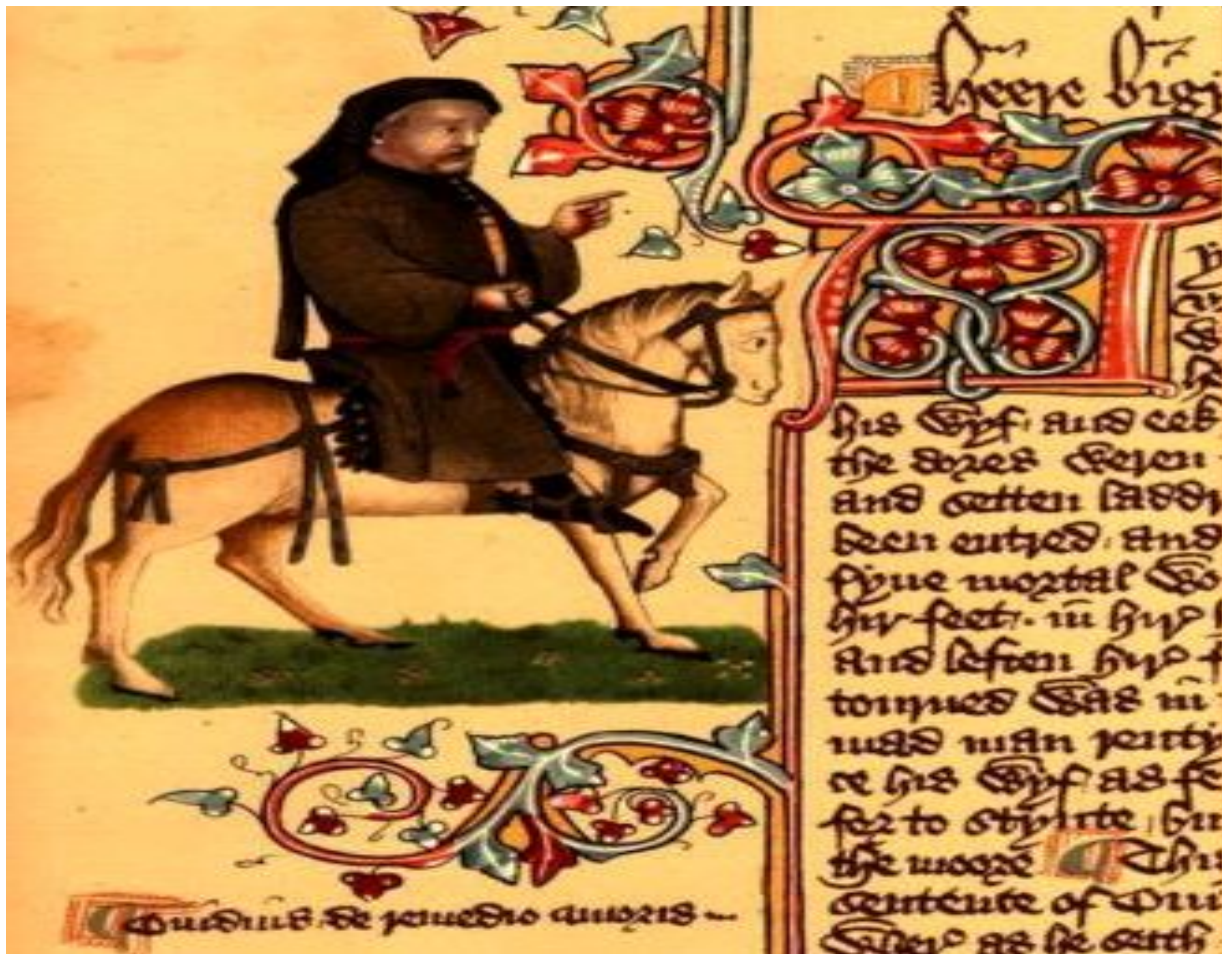 Heere bigi
his wyf. and eek
the dores weren
and setten laddr
been entred. and
fyue mortal wo
hir feet. in hir h
and leften hir f
tourned was in
mad man renty
te his wyf as fe
for to stynte. hir
the moore Thi
sentence of Oui
wher as he seith
Ouidius. de remedio amoris